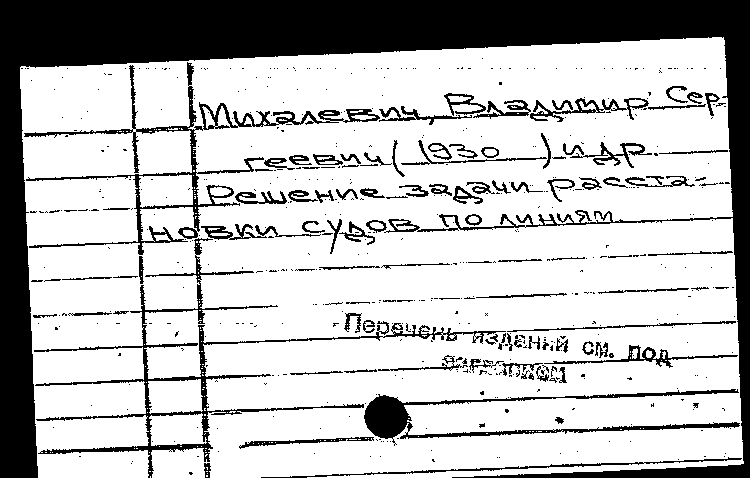 Михалевич, Владимир Сер-
геевич ( 1930 ) и др.
Решение задачи расста-
новки судов по линиям.
Перечень изданий см. под
заглавием